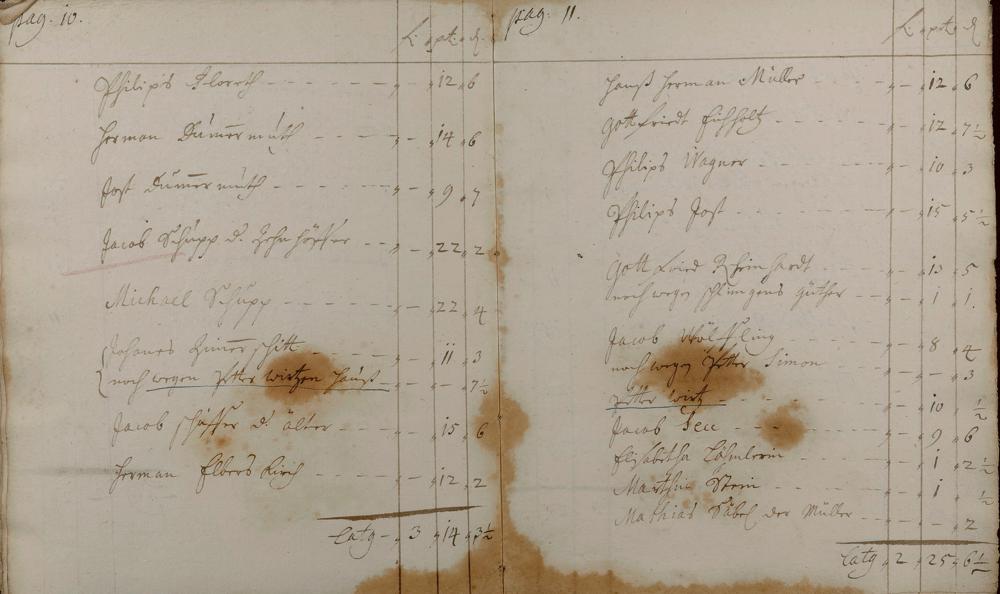 pag: 10.
Philips Floreth - - - - " - " 12 " 6
Herman Dümermuth - - - - " - " 14 " 6
Jost Dümermuth - - - - " - " 9 " 7
Jacob Schupp d. - - " - " 22 " 2
Michael Schupp - - - - " - " 22 " 4
Johanes - - - - " - " 11 " 3
noch wegen Petter Wirtzen Hauß - " - " - " 7½
Jacob Schäffer d. älter - - - " - " 15 " 6
Herman Elbers Kirch - - - " - " 12 " 2
Latg - " 3 " 14 " 3½
pag: 11.
Hanß Herman Müller - - - " - " 12 " 6
Gottfriedt Eichholtz - - - " - " 12 " 7½
Philips Wagner - - - " - " 10 " 3
Philips Jost - - - " - " 15 " 5½
Gottfried Rheinhardt - - - " - " 13 " 5
noch wegen güther - - " - " 1 " 1
Jacob Wölffling - - - " - " 8 " 4
noch wegen Petter Simon - - - " - " - " 3
Petter Wirtz - - - " - " 10 " ½
Jacob - - - " - " 9 " 6
Elisabetha - - - " - " 1 " 2½
Marthin Stein - - - " - " 1 " ½
Mathias Säbel der Müller - - " - " - " 2
Latg " 2 " 25 " 6½